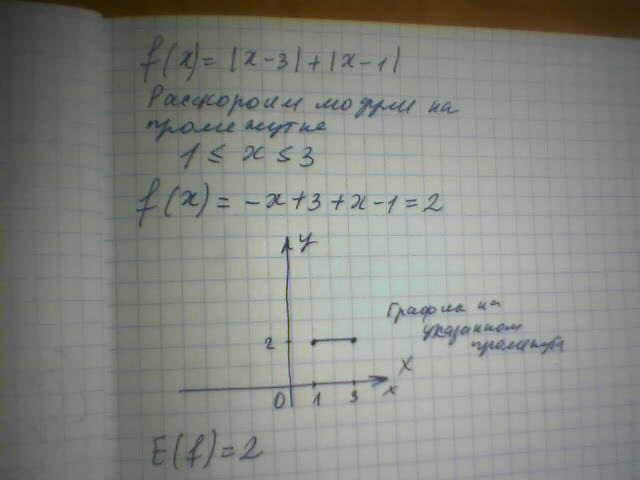 f(x)= |x-3|+|x-1|
Раскроем модули на
промежутке
1 ≤ x ≤ 3
f(x)= -x+3+x-1=2
y
График на
указанном
2
x
0 1 3 x
E(f)=2